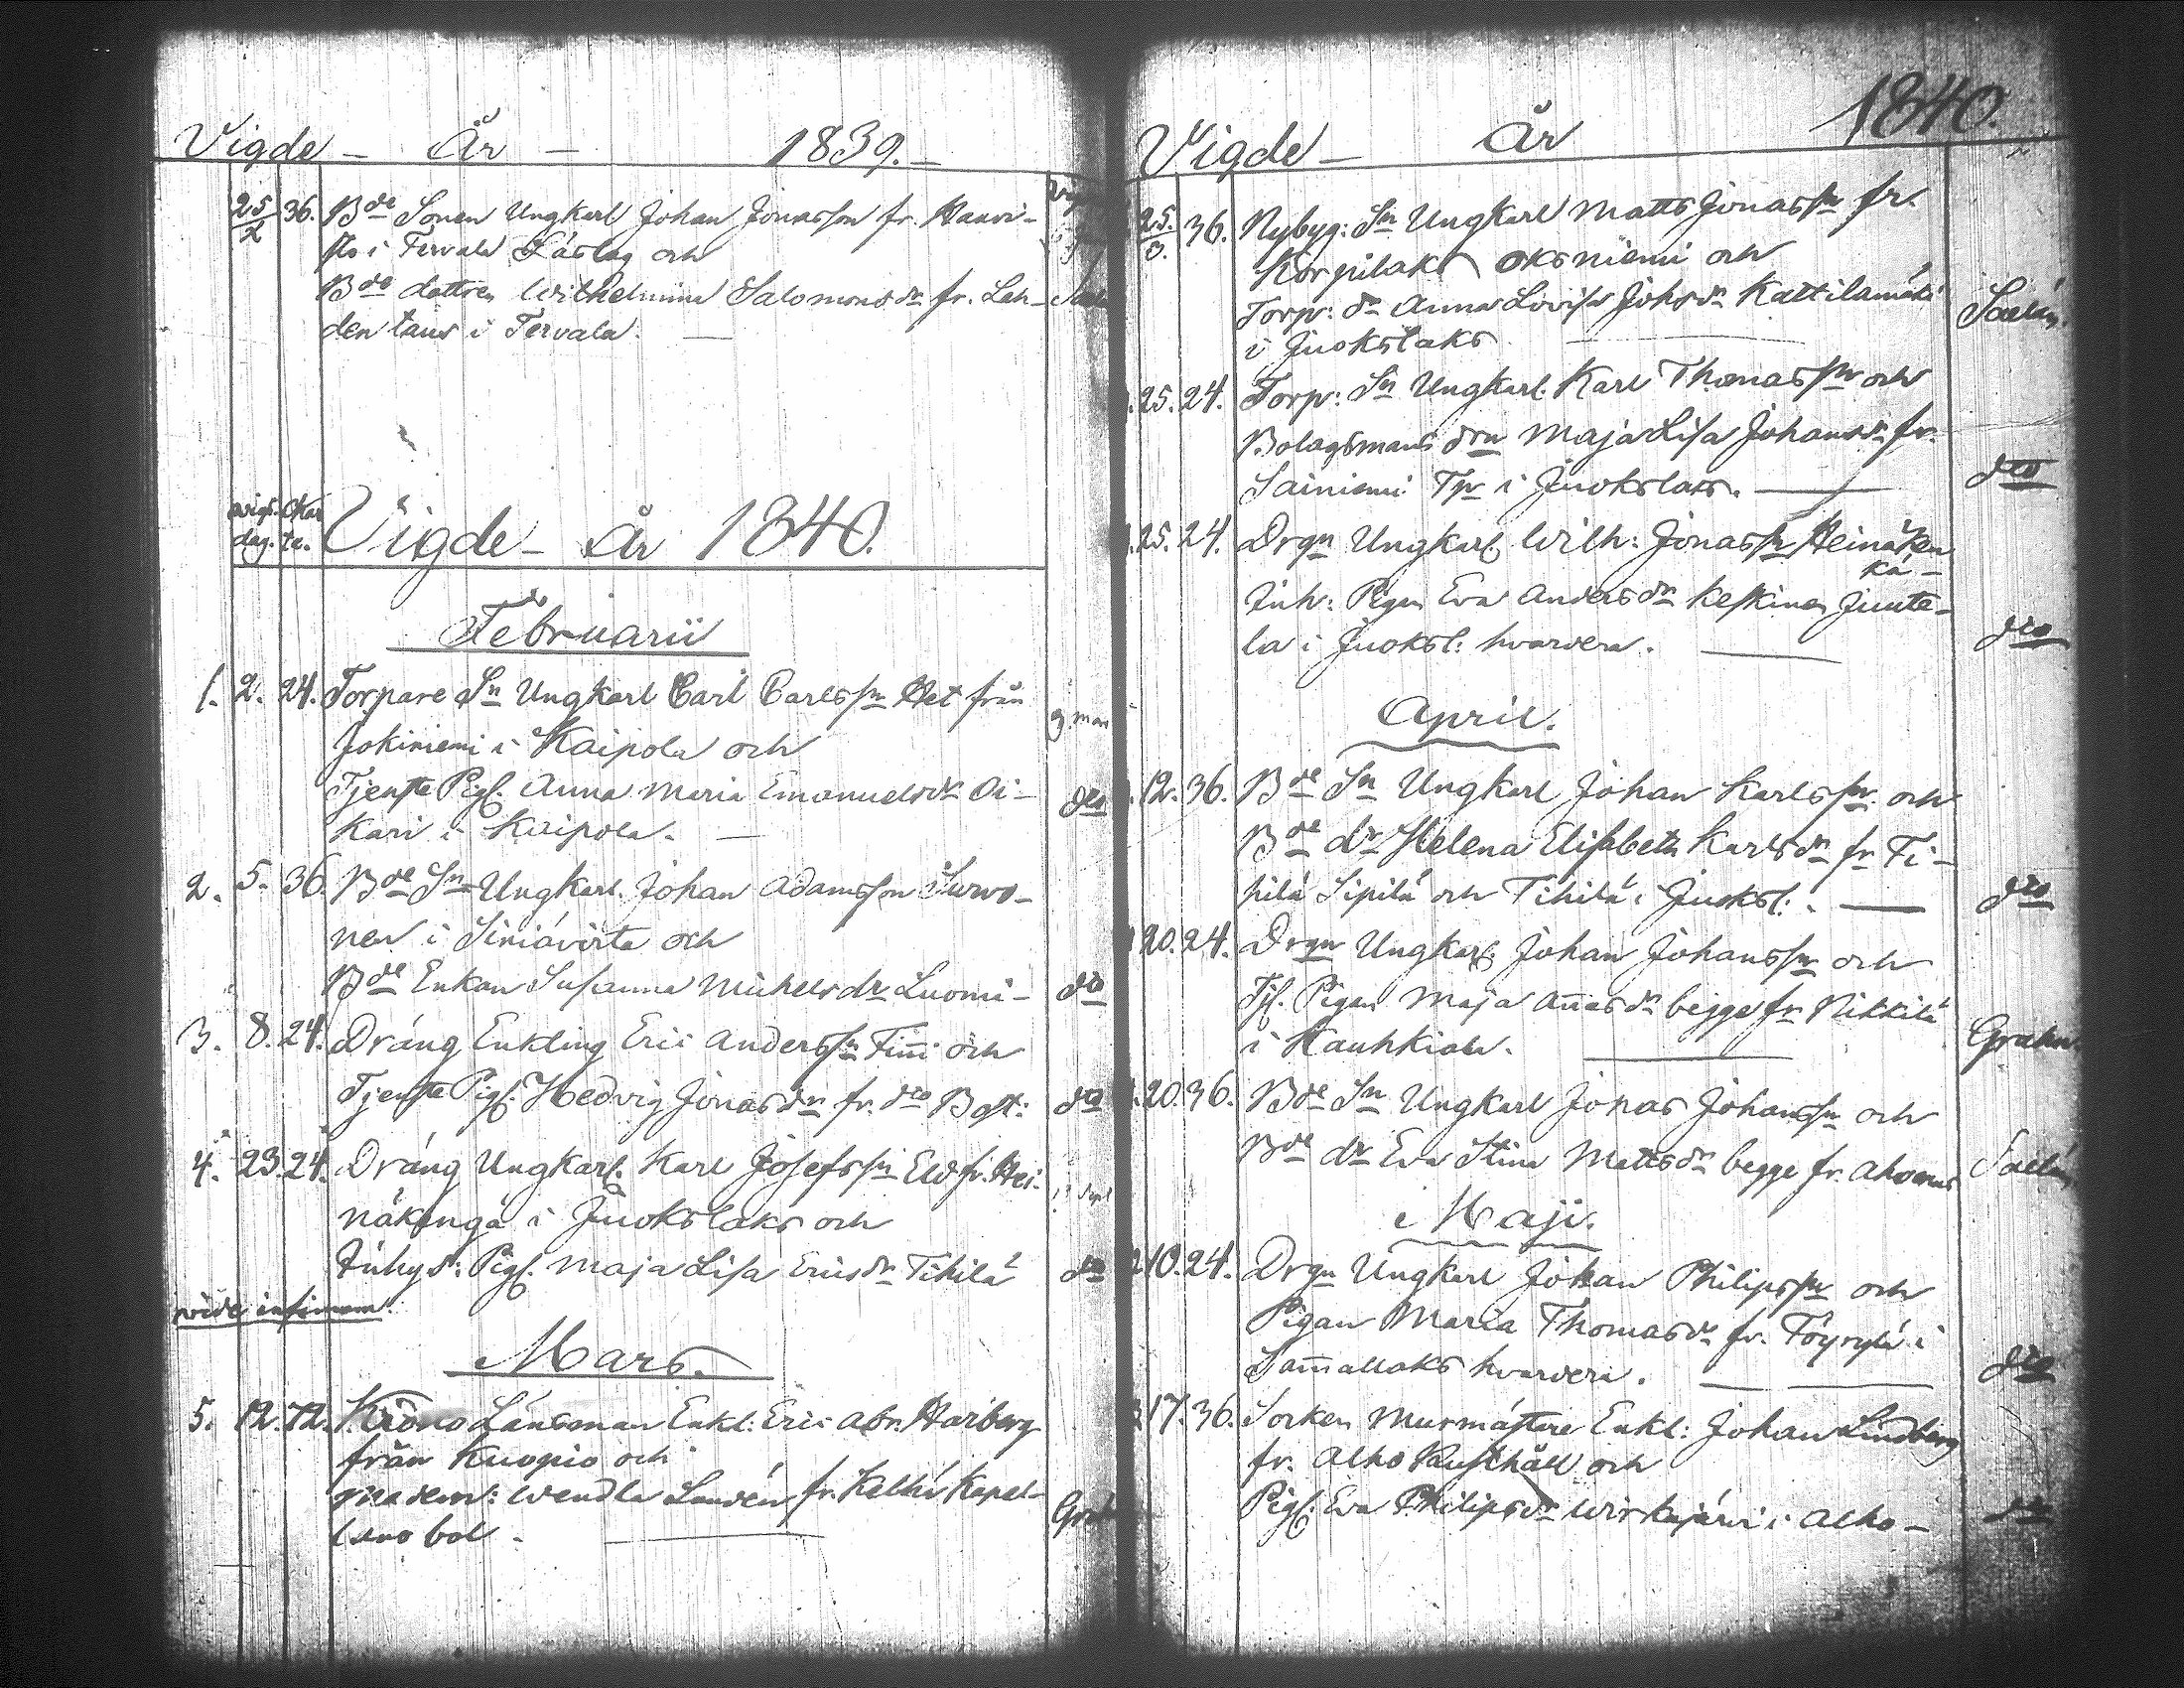 Vigde - År - 1839. -
25/2 36. Bde Sonen Ungkarl Johan Jonasson fr. Haavi-
sto i Tervala Låslag och
Bde dottren Wilhelmina Salomonsdr fr. Lah-
den taus i Tervala. —
vigs. Char
dag. te. Vigde - År 1840.
Februarii
1. 2. 24. Torpare Sn Ungkarl Carl Carlsson Het från
Jokiniemi i Kaipola och
Tjenste Pig. Anna Maria Emanuelsdr Oi- do
kari i Kaipola. —
2. 5. 36. Bde Sn Ungkarl Johan Adamsson Survo-
nen i Siniävirta och
Bde Enkan Susanna Michelsdr Luomi- do
3. 8. 24. Dräng Enkling Eric Anderssn Finni och
Tjenste Pig. Hedvig Jonasdr fr. dto Bost: do
4. 23. 24. Dräng Ungkarl Karl Josefssn Elo fr. Hei-
näkängä i Juokslaks och
Inhys: Pig. Maja Lisa Ericsdr Tihilä do
vide infimam.
Mars.
5. 12. 72. Krono Länsman Enkl: Eric Abr. Harberg
från Kuopio och
madem: Wendla Landén fr. Kalhi Kapel-
lans bol. —
Vigde - År 1840.
25./3. 36. Nybyg: Sn Ungkarl Matts Jonassn fr.
Korpilaks Oksniemi och
Torp: dr Anna Lovisa Johsdr Kattilamäki
i Juokslaks —
25. 24. Torp: Sn Ungkarl Karl Thomassn och
Bolagsmans drn Maja Lisa Johansdr fr.
Sainiemi Tp i Juokslaks. — dto
25. 24. Drgn Ungkarl Wilh: Jonassn Heinäken
kä-
Inh: Pigan Eva Andersdr Keskinen Junte-
la i Juoksl: hvardera. — dto
April.
12. 36. Bde Sn Ungkarl Johan Karlssn och
Bde dr Helena Elisabeth Karlsdr fr Ti-
hilä Sipilä och Tihilä i Juoksl: — dto
20. 24. Drgn Ungkarl Johan Johanssn och
Tj. Pigan Maja Annasdr begge fr Nikkilä
i Kauhkiala. — Grahn.
20. 36. Bde Sn Ungkarl Jonas Johanssn och
Bde dr Eva Stina Mattsdr begge fr.
Maji.
10. 24. Drgn Ungkarl Johan Philipssn och
Pigan Maria Thomasdr fr. Töyrylä i
Sammallaks hvardera. — dto
17. 36. Socken Murmästare Enkl: Johan Lindberg
fr. Alho Rusthåll och
Pig: Eva Philipsdr Wirkajärvi i Alho - do